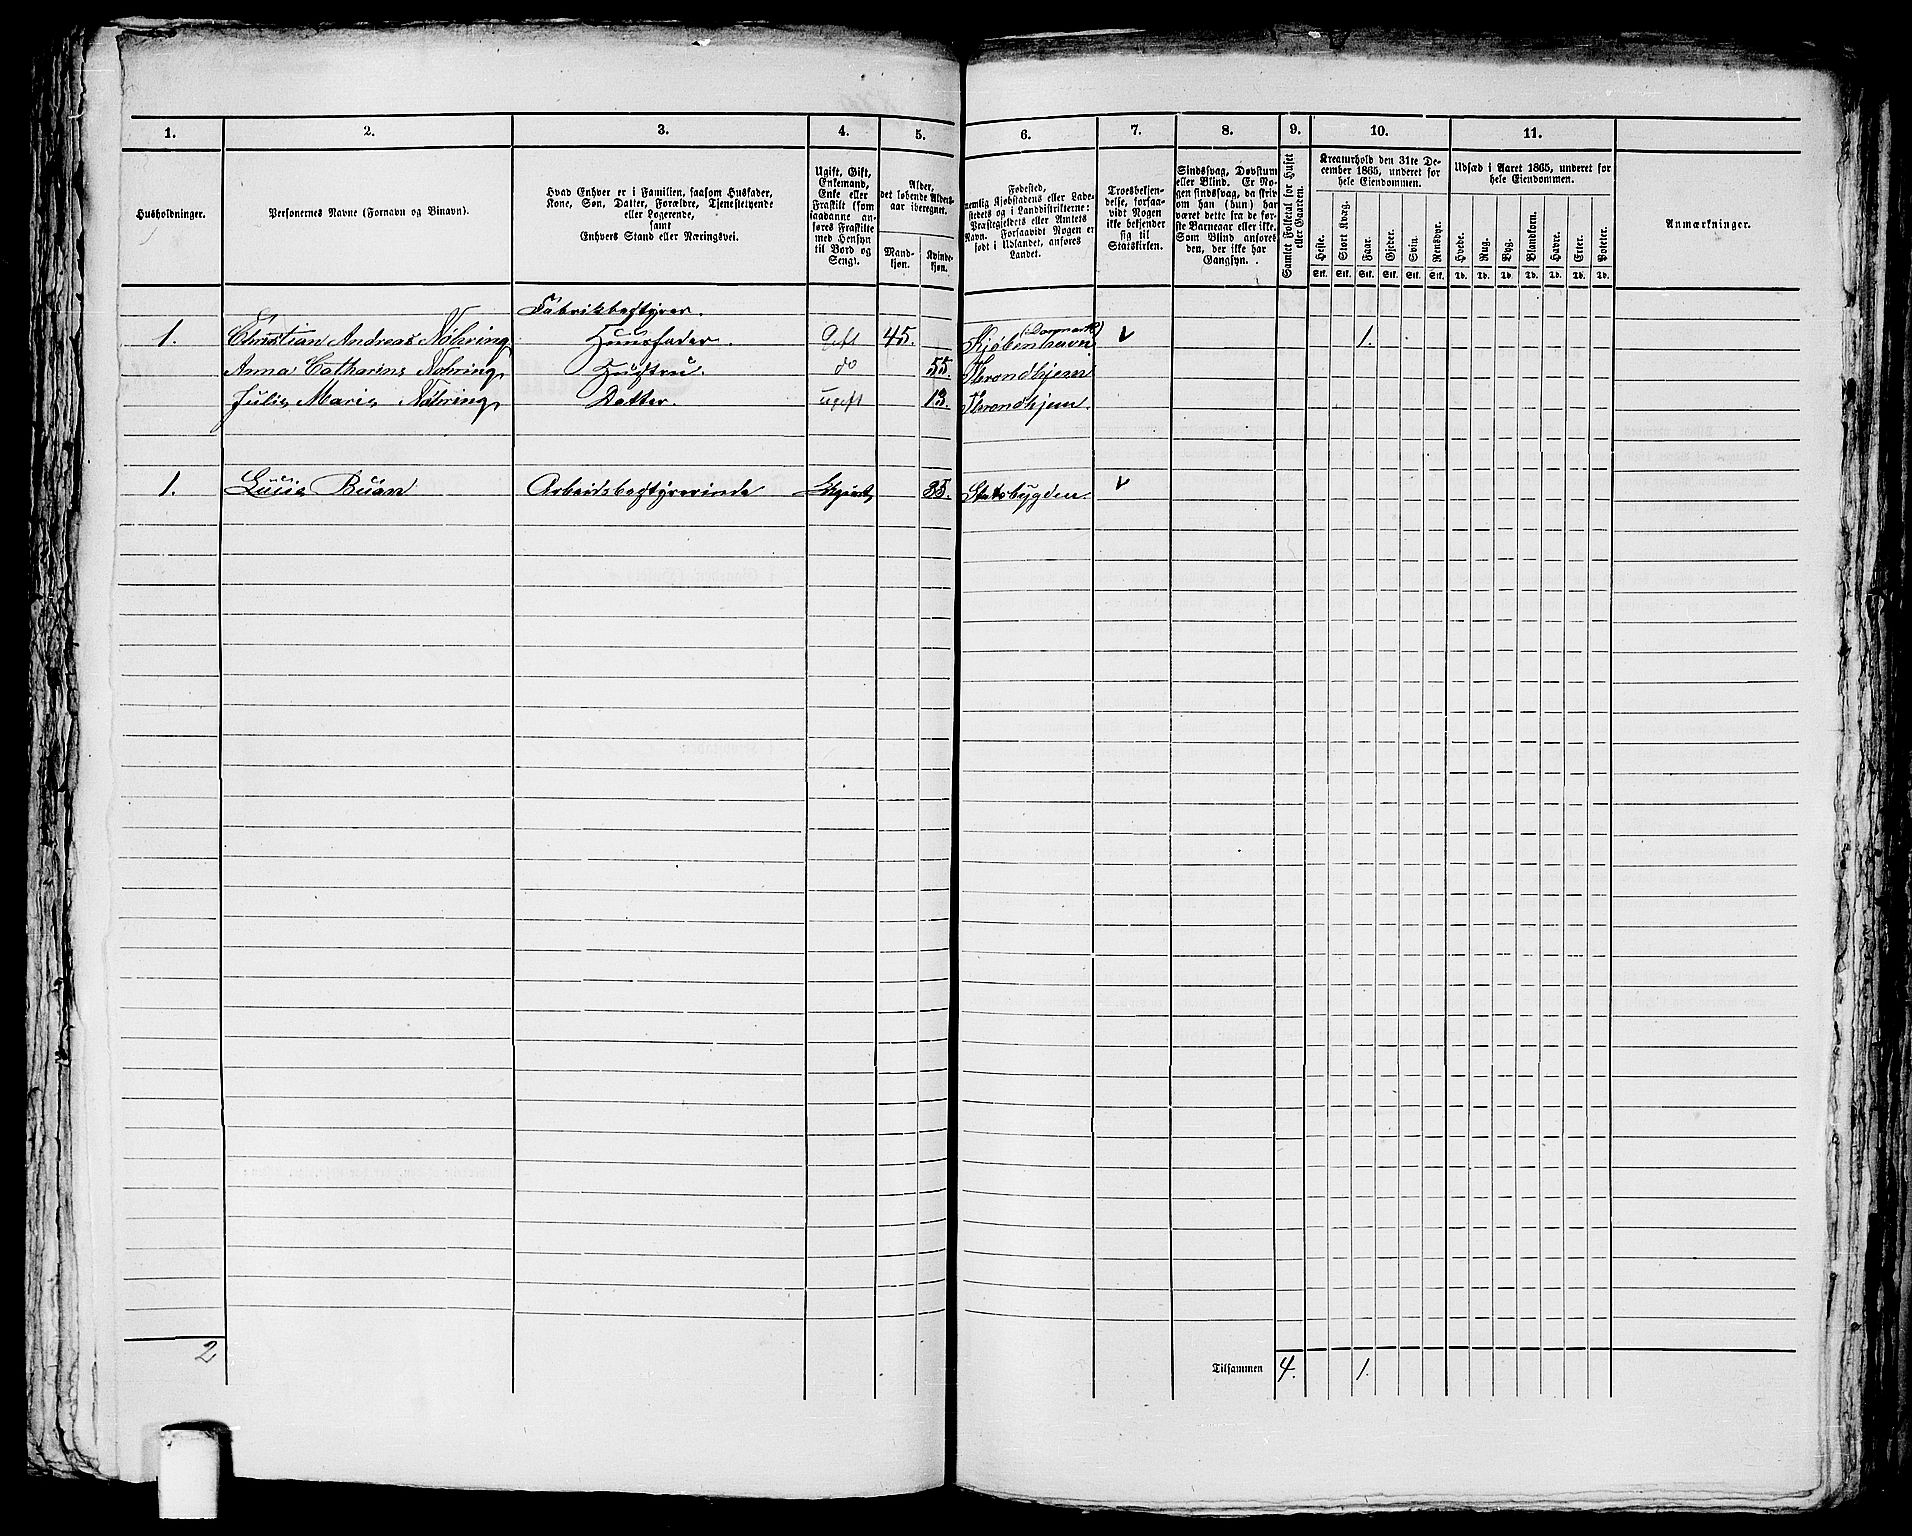 1. 2. 3. 4. 5. 6. 7. 8. 9. 10. 11.
Husholdninger.
Personernes Navne (Fornavn og Binavn).
Hvad Enhver er i Familien, saasom Husfader,
Kone, Søn, Datter, Forældre, Tjenestetyende
eller Logerende,
samt
Enhvers Stand eller Næringsvei.
Ugift, Gift,
Enkemand,
Enke eller
Fraskilt (som
saadanne an-
føres Fraskilte
med Hensyn
til Bord og
Seng).
Alder,
det løbende Alders-
aar iberegnet.
Mand-
kjøn.
Kvinde-
kjøn.
Fødested,
nemlig Kjøbstadens eller Lade-
stedets og i Landdistrikterne:
Præstegjeldets eller Amtets
Navn. Forsaavidt Nogen er
født i Udlandet, anføres
Landet.
Troesbekjen-
delse, forsaa-
vidt Nogen
ikke bekjender
sig til
Statskirken.
Sindssvag, Døvstum
eller Blind. Er No-
gen sindssvag, da skriv
om han (hun) har
været dette fra de før-
ste Barneaar eller ikke.
Som Blind anføres
den, der ikke har
Gangsyn.
Samlet Folketal for Huset
eller Gaarden.
Kreaturhold den 31te De-
cember 1865, underet for
hele Eiendommen.
Heste. Stort Kvæg. Faar. Gjeder. Svin. Rensdyr.
Stk. Stk. Stk. Stk. Stk. Stk.
Udsæd i Aaret 1865, underet for
hele Eiendommen.
Hvede. Rug. Byg. Blandkorn. Havre. Erter. Poteter.
Td. Td. Td. Td. Td. Td. Td.
Anmærkninger.
Fabrikbestyrer.
1. Christian Andreas Nöhring Huusfader. Gift 45. Kjøbenhavn (Danmark) v 1.
Anna Catharine Nöhring Hustru. do 55. Throndhjem
Julie Marie Nöhring Datter. ugift 13. Throndhjem.
1. Lucie Buan Arbeidsbestyrerinde Ugift 35. Statsbygden v
2
Tilsammen 4. 1.